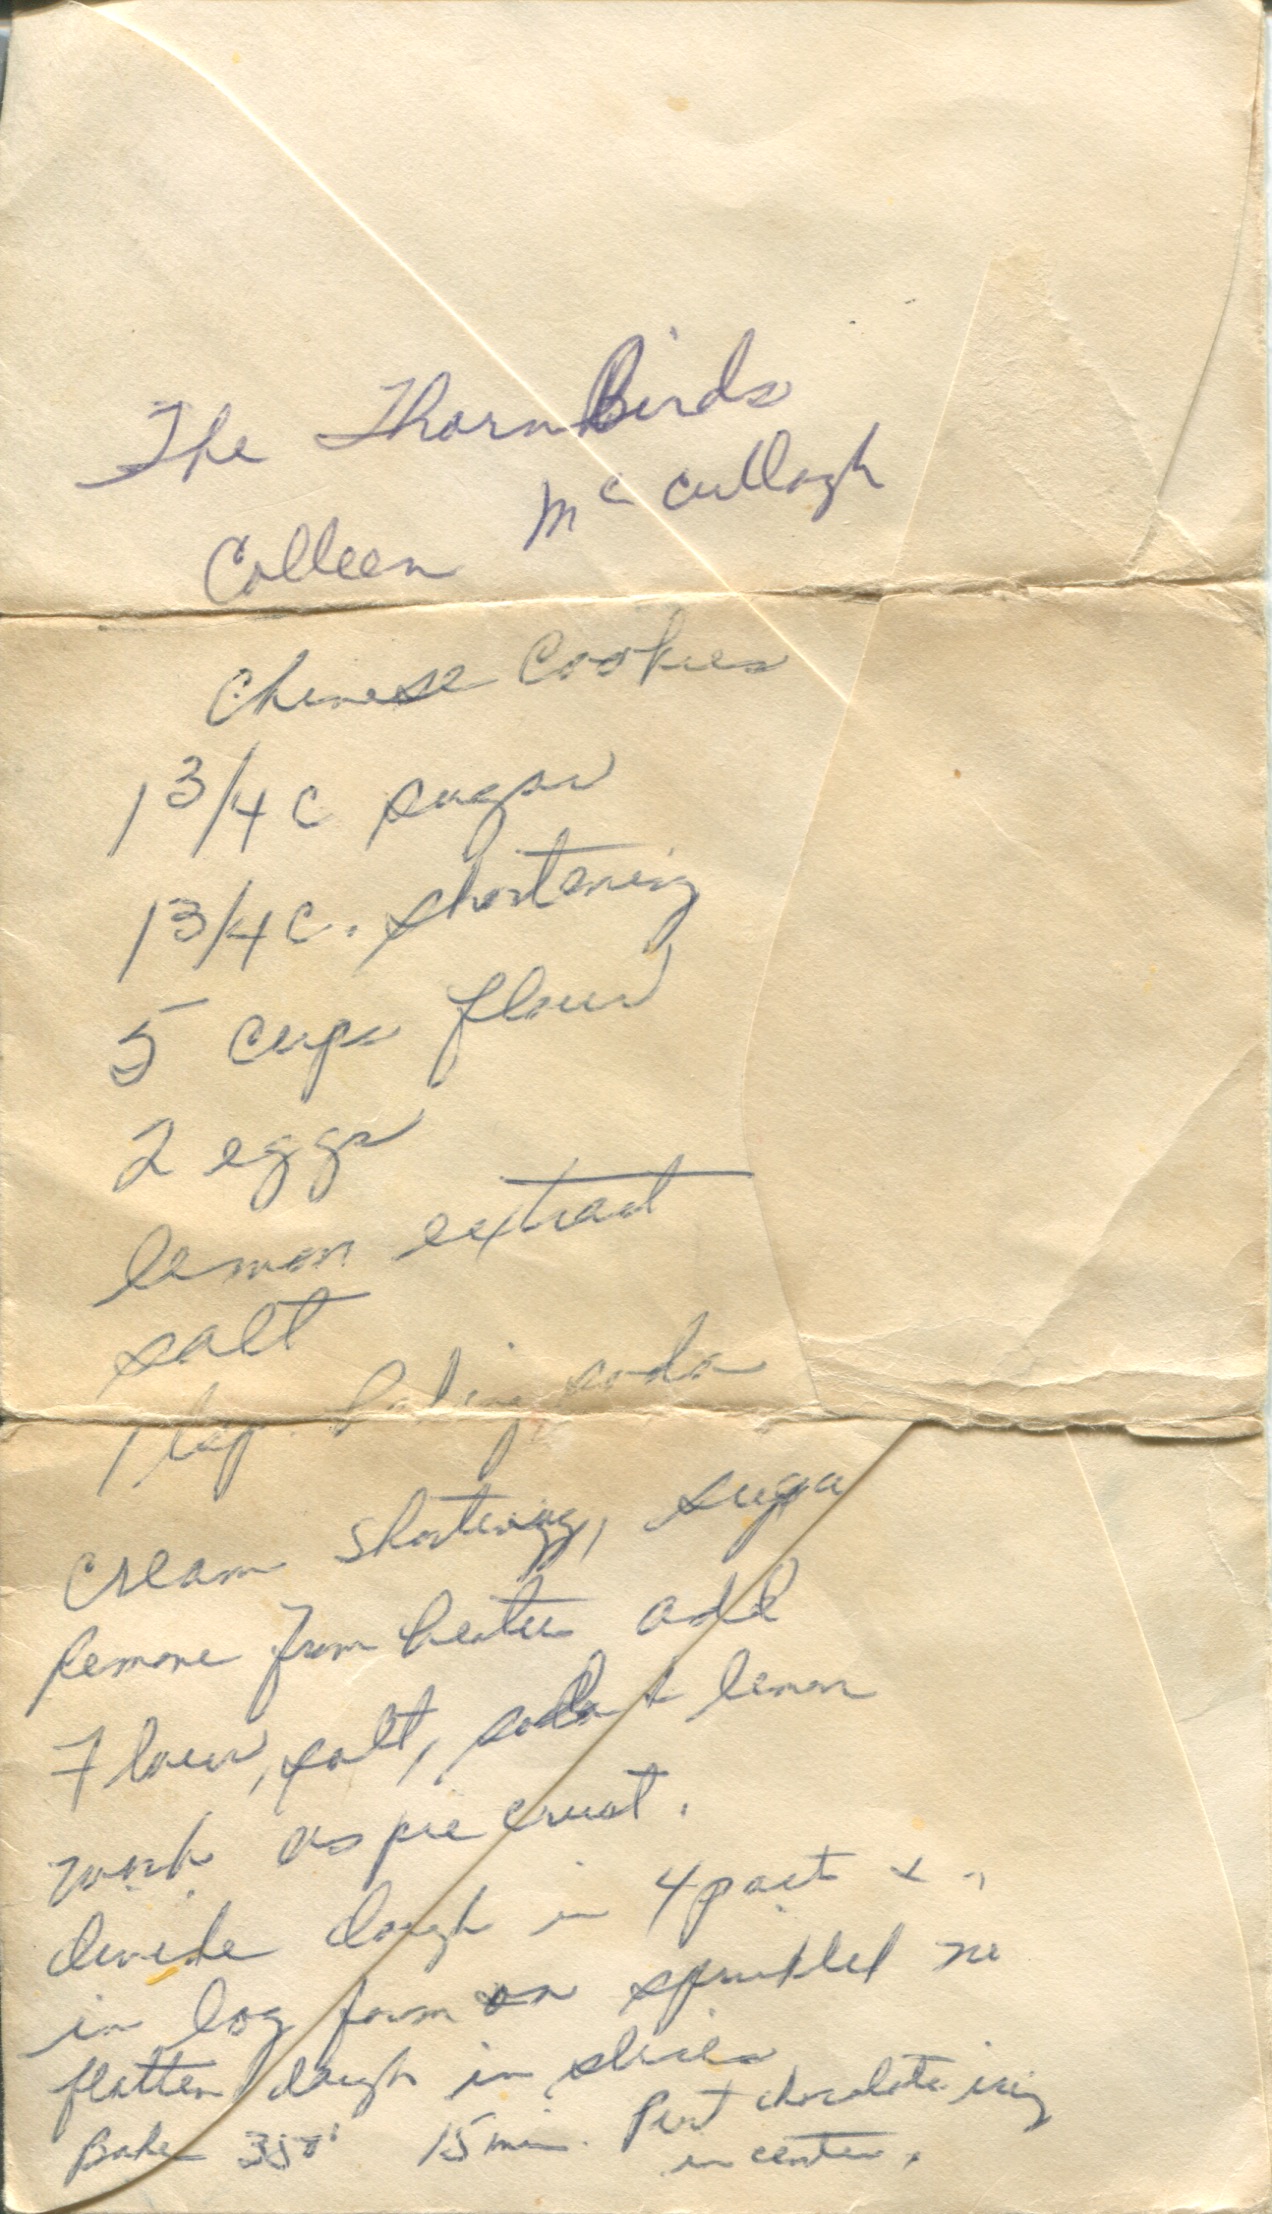 The Thorn Birds
Colleen McCullagh
Chinese Cookies
1 3/4 c sugar
1 3/4 c. shortening
5 cups flour
2 eggs
lemon extract
salt
1 tsp baking soda
Cream shortening, sugar
Remove from beater add
Flour, salt, soda & lemon
work as pie crust.
divide dough in 4 parts &
in log form on sprinkled
flatten dough in slices
Bake 350° 15 min. Put chocolate icing
in center.